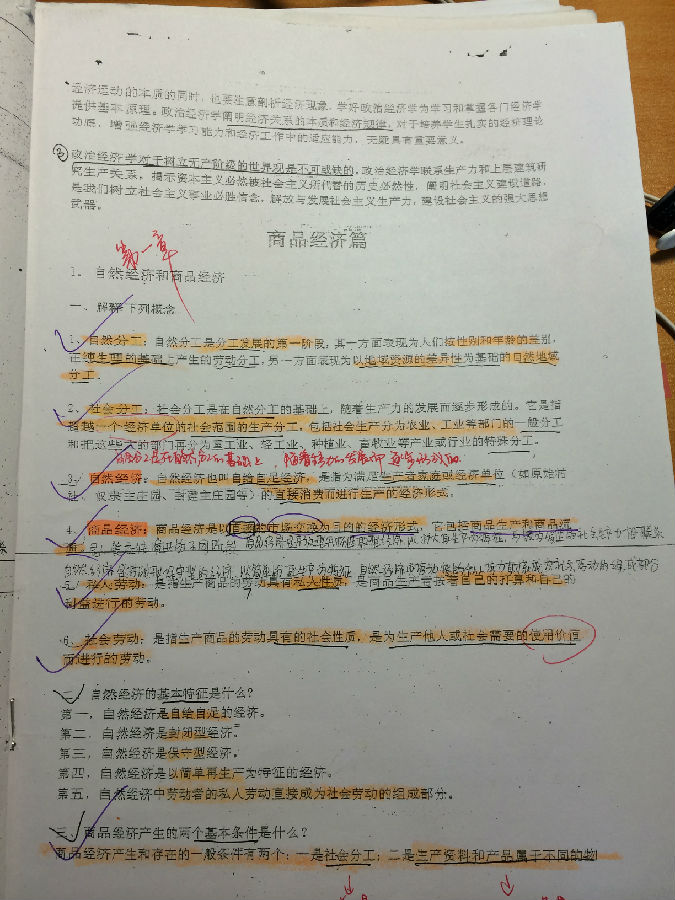 经济运动的本质的同时，也要注意剖析经济现象。学好政治经济学为学习和掌握各门经济学
提供基本原理。政治经济学阐明经济关系的本质和经济规律，对于培养学生扎实的经济理论
功底，增强经济学学习能力和经济工作中的适应能力，无疑具有重要意义。
③政治经济学对于树立无产阶级的世界观是不可或缺的。政治经济学联系生产力和上层建筑研
究生产关系，揭示资本主义必然被社会主义所代替的历史必然性，阐明社会主义建设道路，
是我们树立社会主义事业必胜信念、解放与发展社会主义生产力，建设社会主义的强大思想
武器。
商品经济篇
第一章
1. 自然经济和商品经济
一、解释下列概念
1、自然分工：自然分工是分工发展的第一阶段，其一方面表现为人们按性别和年龄的差别，
在纯生理的基础上产生的劳动分工，另一方面表现为以地域资源的差异性为基础的自然地域
分工。
2、社会分工：社会分工是在自然分工的基础上，随着生产力的发展而逐步形成的。它是指
超越一个经济单位的社会范围的生产分工，包括社会生产分为农业、工业等部门的一般分工
和把这些大的部门再分为重工业、轻工业、种植业、畜牧业等产业或行业的特殊分工。
3、自然经济：自然经济也叫自给自足经济，是指为满足生产者家庭或经济单位（如原始氏
社、奴隶主庄园、封建主庄园等）的直接消费而进行生产的经济形式。
4、商品经济：商品经济是以直接的市场交换为目的的经济形式，它包括商品生产和商品流
通。
5、私人劳动：是指生产商品的劳动具有私人性质，是商品生产者按着自己的打算和自己的
利益进行的劳动。
6、社会劳动：是指生产商品的劳动具有的社会性质，是为生产他人或社会需要的使用价值
而进行的劳动。
二、自然经济的基本特征是什么？
第一，自然经济是自给自足的经济。
第二，自然经济是封闭型经济。
第三，自然经济是保守型经济。
第四，自然经济是以简单再生产为特征的经济。
第五，自然经济中劳动者的私人劳动直接成为社会劳动的组成部分。
三、商品经济产生的两个基本条件是什么？
商品经济产生和存在的一般条件有两个：一是社会分工；二是生产资料和产品属于不同的物